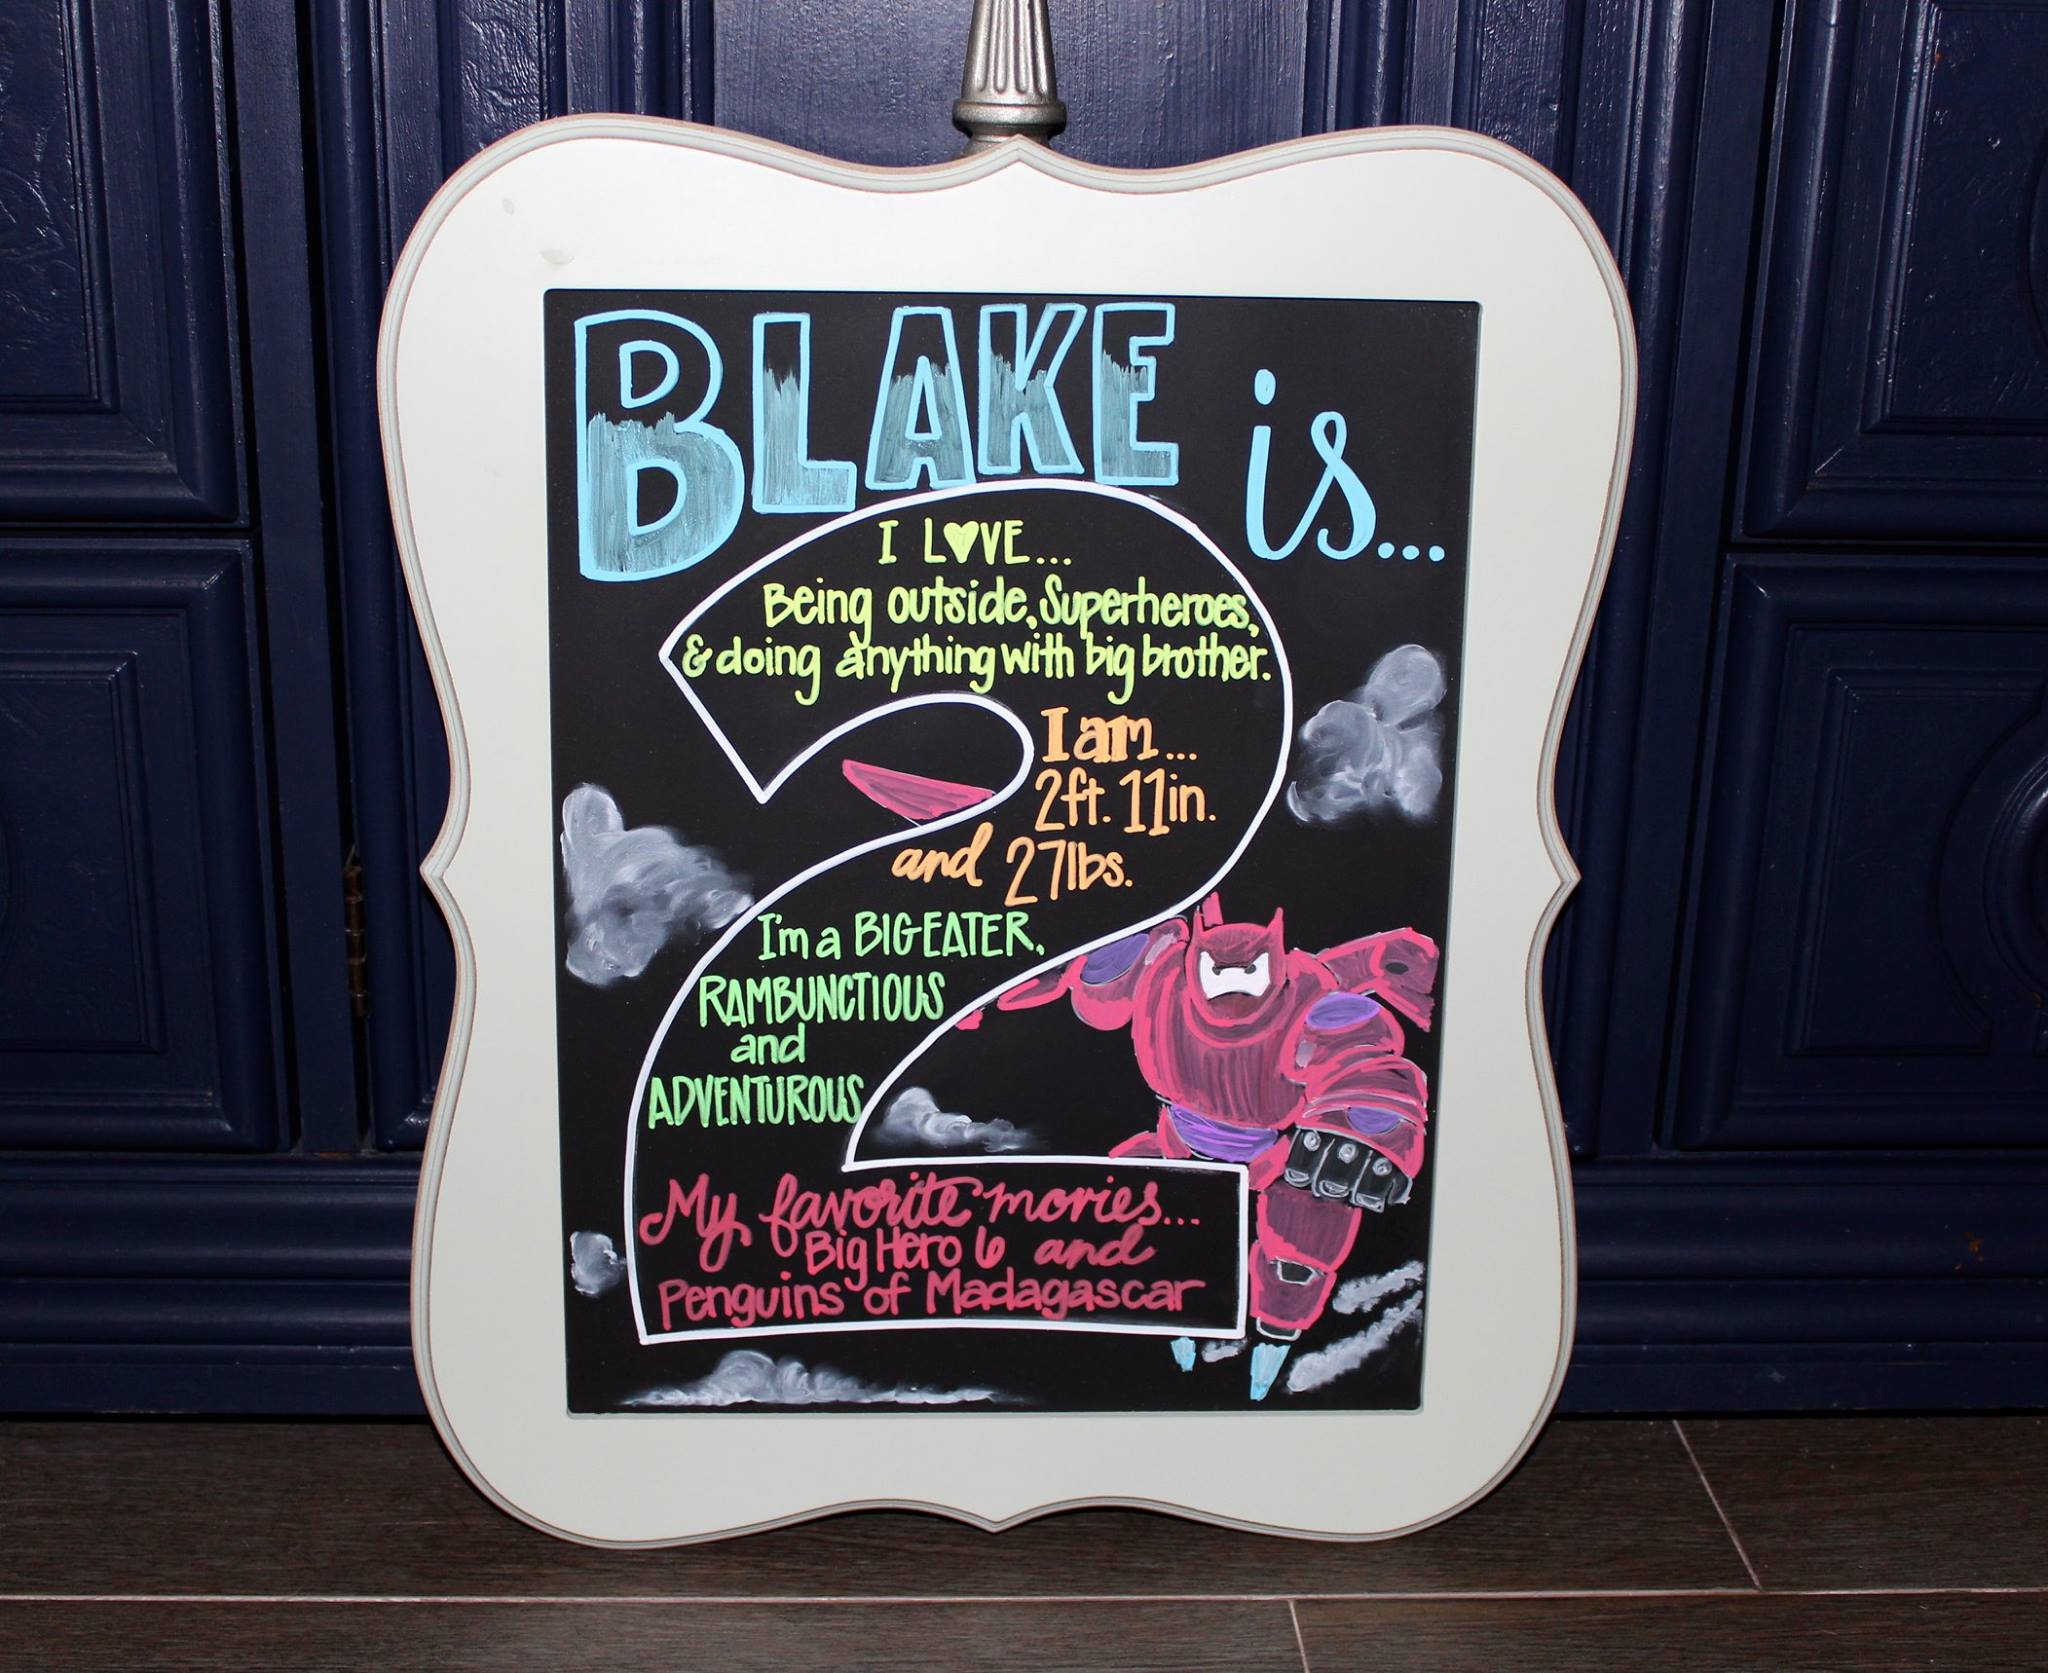 BLAKE is...
I LOVE...
Being outside, Superheroes,
& doing anything with big brother.
I am...
2ft. 11in.
and 27lbs.
I'm a BIG EATER,
RAMBUNCTIOUS
and
ADVENTUROUS
My favorite movies...
Big Hero 6 and
Penguins of Madagascar